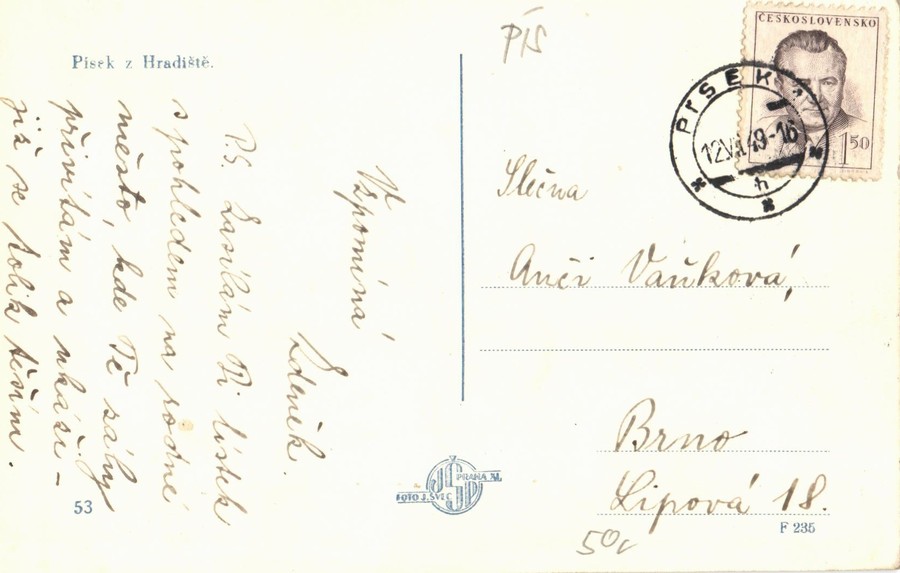 Písek z Hradiště.
PÍS
ČESKOSLOVENSKO
1 50
PÍSEK
12.VII.49-16
h
Vzpomíná
Zdeněk.
P.S. Zasílám Ti lístek
s pohledem na rodné
město, kde Tě
přivítám a ukáži –
již se tolik těším.
Slečna
Anči Vaňková,
Brno
Lipová 18.
FOTO J. ŠVEC
PRAHA XI.
53
F 235
50